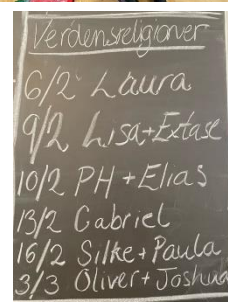 Verdensreligioner
6/2 Laura
9/2 Lisa+Extase
10/2 PH+Elias
13/2 Gabriel
16/2 Silke+Paula
3/3 Oliver+Joshua